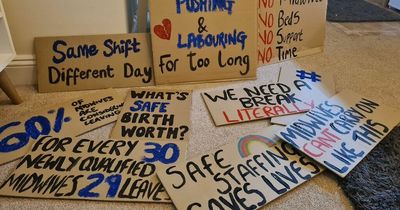 Same Shift
Different Day
PUSHING
&
LABOURING
For too Long
NO Midwives
NO Beds
NO Support
NO Time
60%
OF
MIDWIVES
ARE CONSIDERING
LEAVING
WHAT'S
SAFE
BIRTH
WORTH?
WE NEED A
BREAK
LITERALLY
#
MIDWIVES
CAN'T CARRY ON
LIKE THIS
FOR EVERY 30
NEWLY QUALIFIED
MIDWIVES 29 LEAVE
SAFE
STAFFING
SAVES LIVES